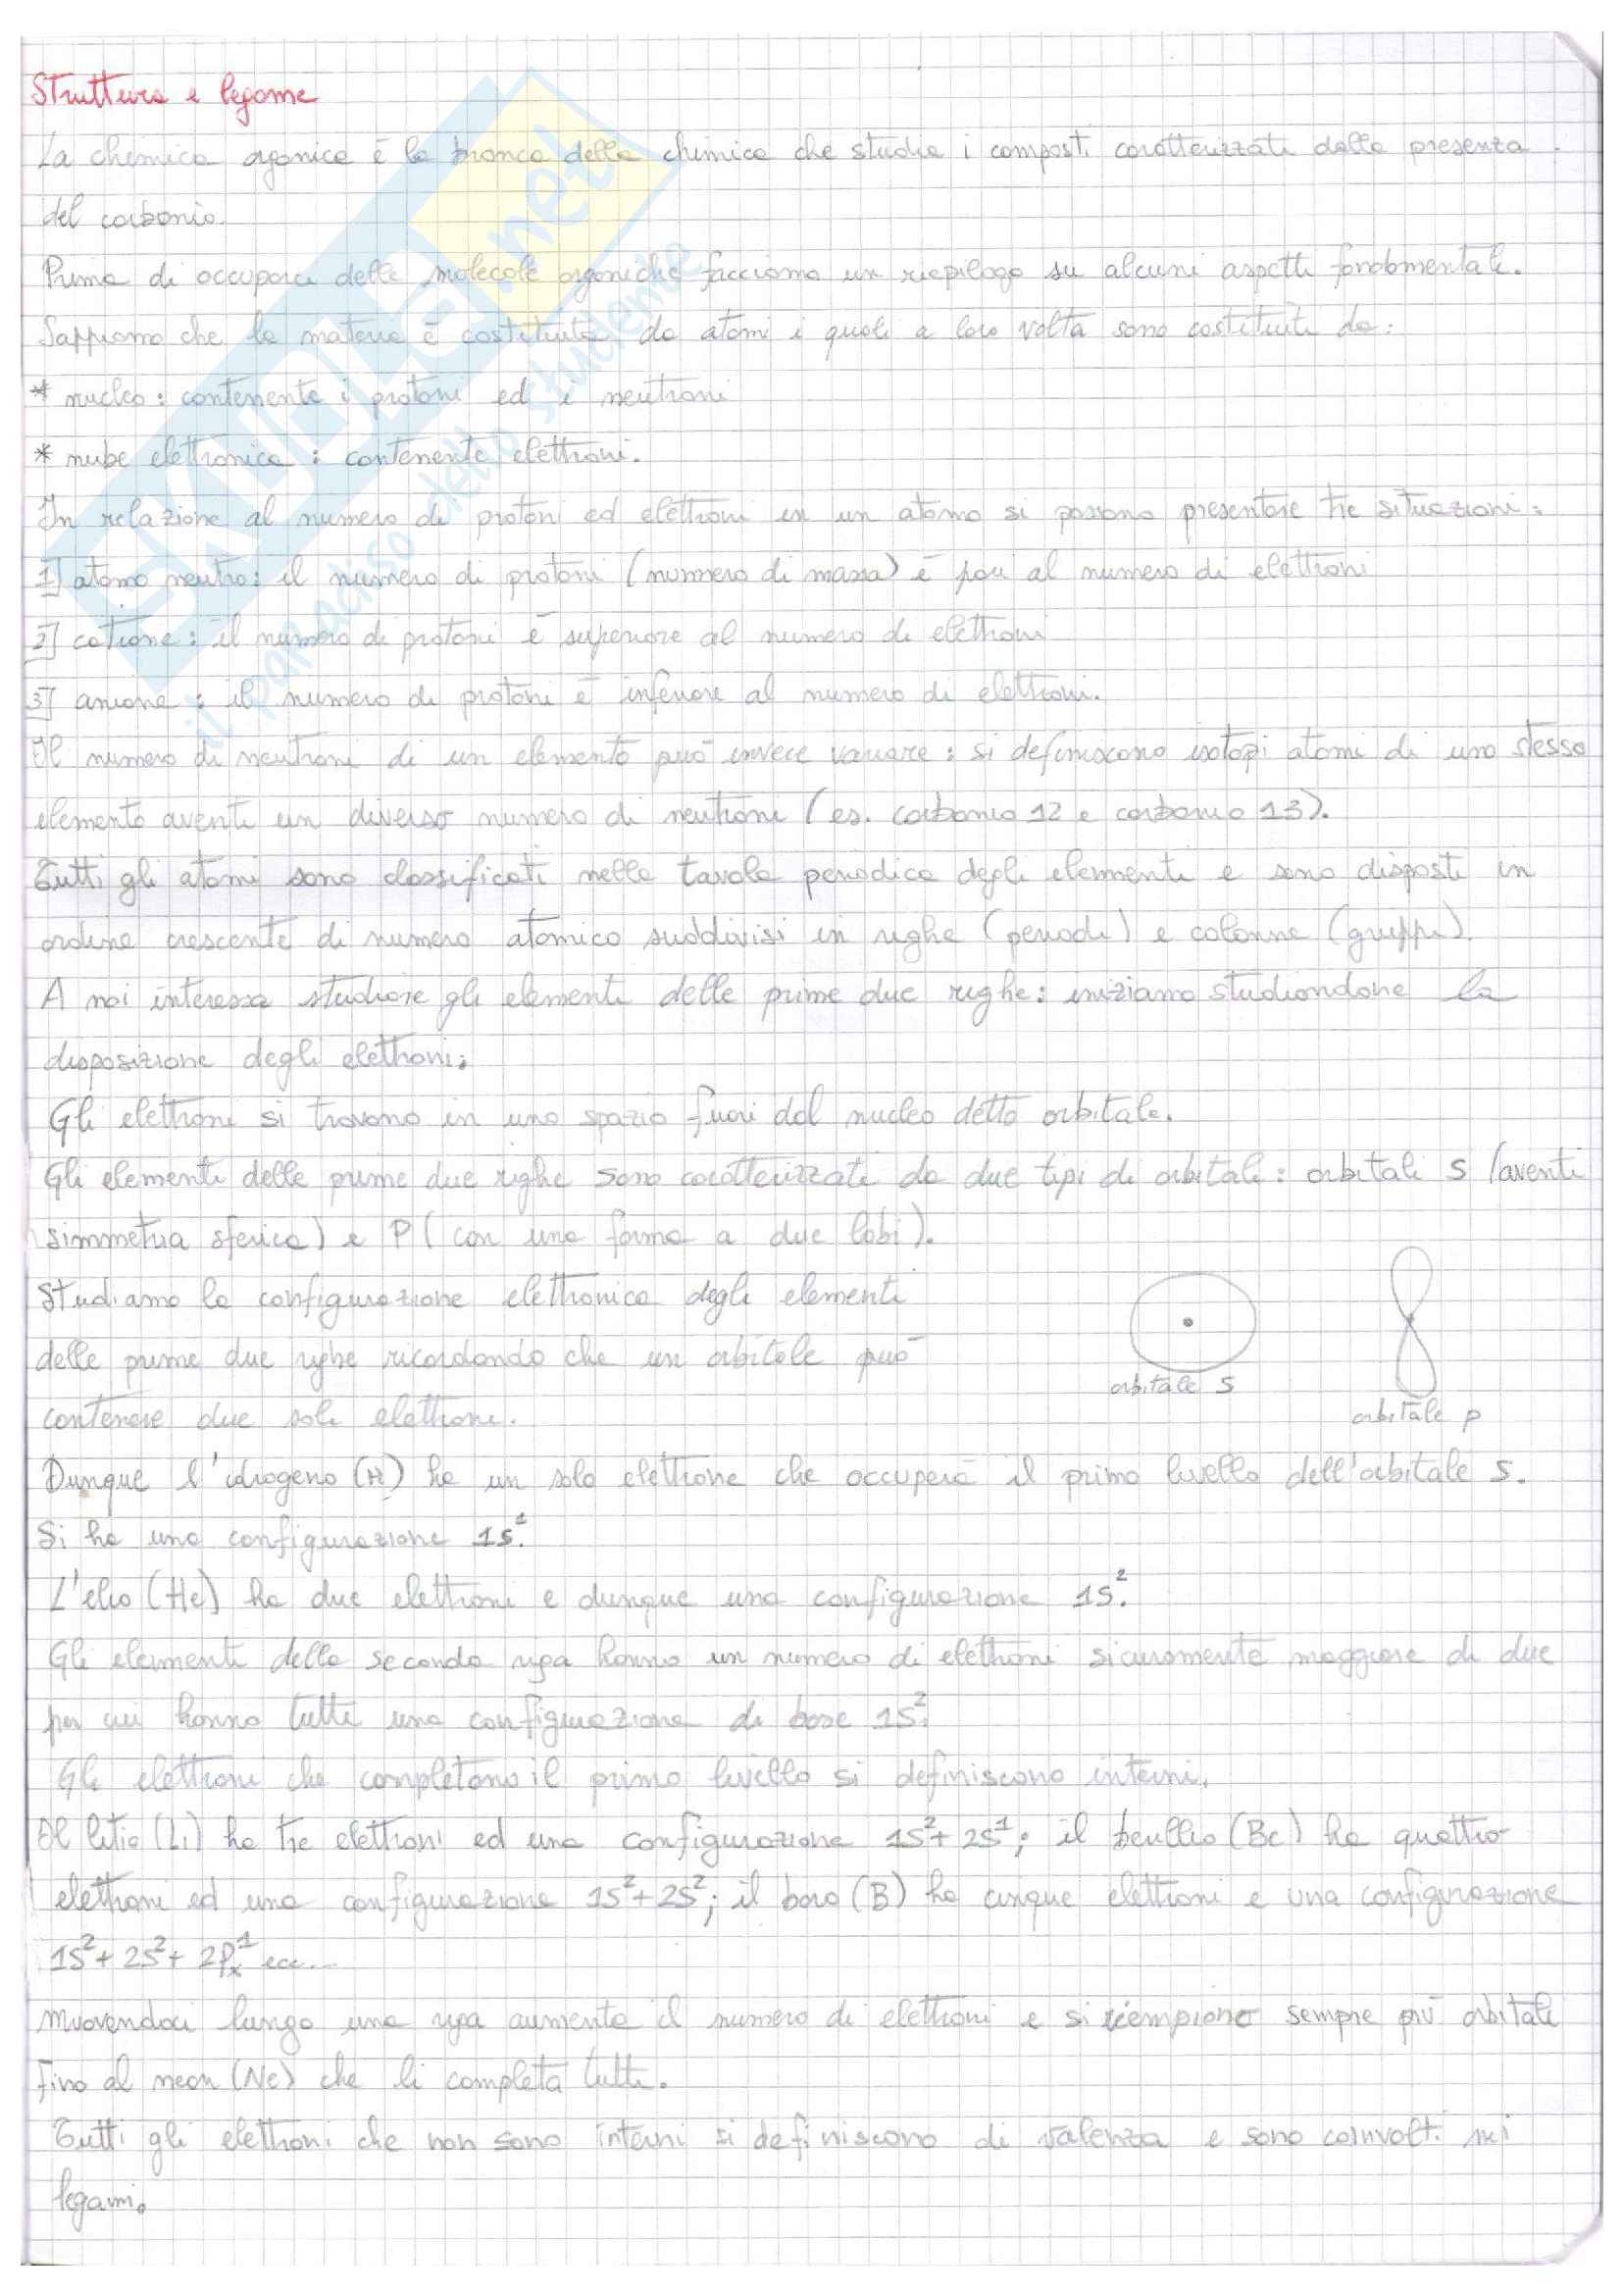 Struttura e legame
La chimica organica è la branca della chimica che studia i composti caratterizzati dalla presenza
del carbonio.
Prima di occuparci delle molecole organiche facciamo un riepilogo su alcuni aspetti fondamentali.
Sappiamo che la materia è costituita da atomi i quali a loro volta sono costituiti da:
* nucleo: contenente i protoni ed i neutroni
* nube elettronica: contenente elettroni.
In relazione al numero di protoni ed elettroni in un atomo si possono presentare tre situazioni:
1] atomo neutro: il numero di protoni (numero di massa) è pari al numero di elettroni
2] catione: il numero di protoni è superiore al numero di elettroni
3] anione: il numero di protoni è inferiore al numero di elettroni.
Il numero di neutroni di un elemento può invece variare: si definiscono isotopi atomi di uno stesso
elemento aventi un diverso numero di neutroni (es. carbonio 12 e carbonio 13).
Tutti gli atomi sono classificati nella tavola periodica degli elementi e sono disposti in
ordine crescente di numero atomico suddivisi in righe (periodi) e colonne (gruppi).
A noi interessa studiare gli elementi delle prime due righe: iniziamo studiandone la
disposizione degli elettroni:
Gli elettroni si trovano in uno spazio fuori dal nucleo detto orbitale.
Gli elementi delle prime due righe sono caratterizzati da due tipi di orbitali: orbitali s (aventi
simmetria sferica) e P (con una forma a due lobi).
Studiamo la configurazione elettronica degli elementi
delle prime due righe ricordando che un orbitale può
contenere due soli elettroni.
orbitale s
orbitale p
Dunque l'idrogeno (H) ha un solo elettrone che occuperà il primo livello dell'orbitale s.
Si ha una configurazione 1s¹.
L'elio (He) ha due elettroni e dunque una configurazione 1s².
Gli elementi della seconda riga hanno un numero di elettroni sicuramente maggiore di due
per cui hanno tutti una configurazione di base 1s².
Gli elettroni che completano il primo livello si definiscono interni.
Il litio (Li) ha tre elettroni ed una configurazione 1s²+ 2s¹; il berillio (Be) ha quattro
elettroni ed una configurazione 1s²+ 2s²; il boro (B) ha cinque elettroni e una configurazione
1s²+ 2s²+ 2Pₓ¹ ecc...
Muovendoci lungo una riga aumenta il numero di elettroni e si riempiono sempre più orbitali
fino al neon (Ne) che li completa tutti.
Tutti gli elettroni che non sono interni si definiscono di valenza e sono coinvolti nei
legami.
SKUOLA.net
il paradiso dello studente